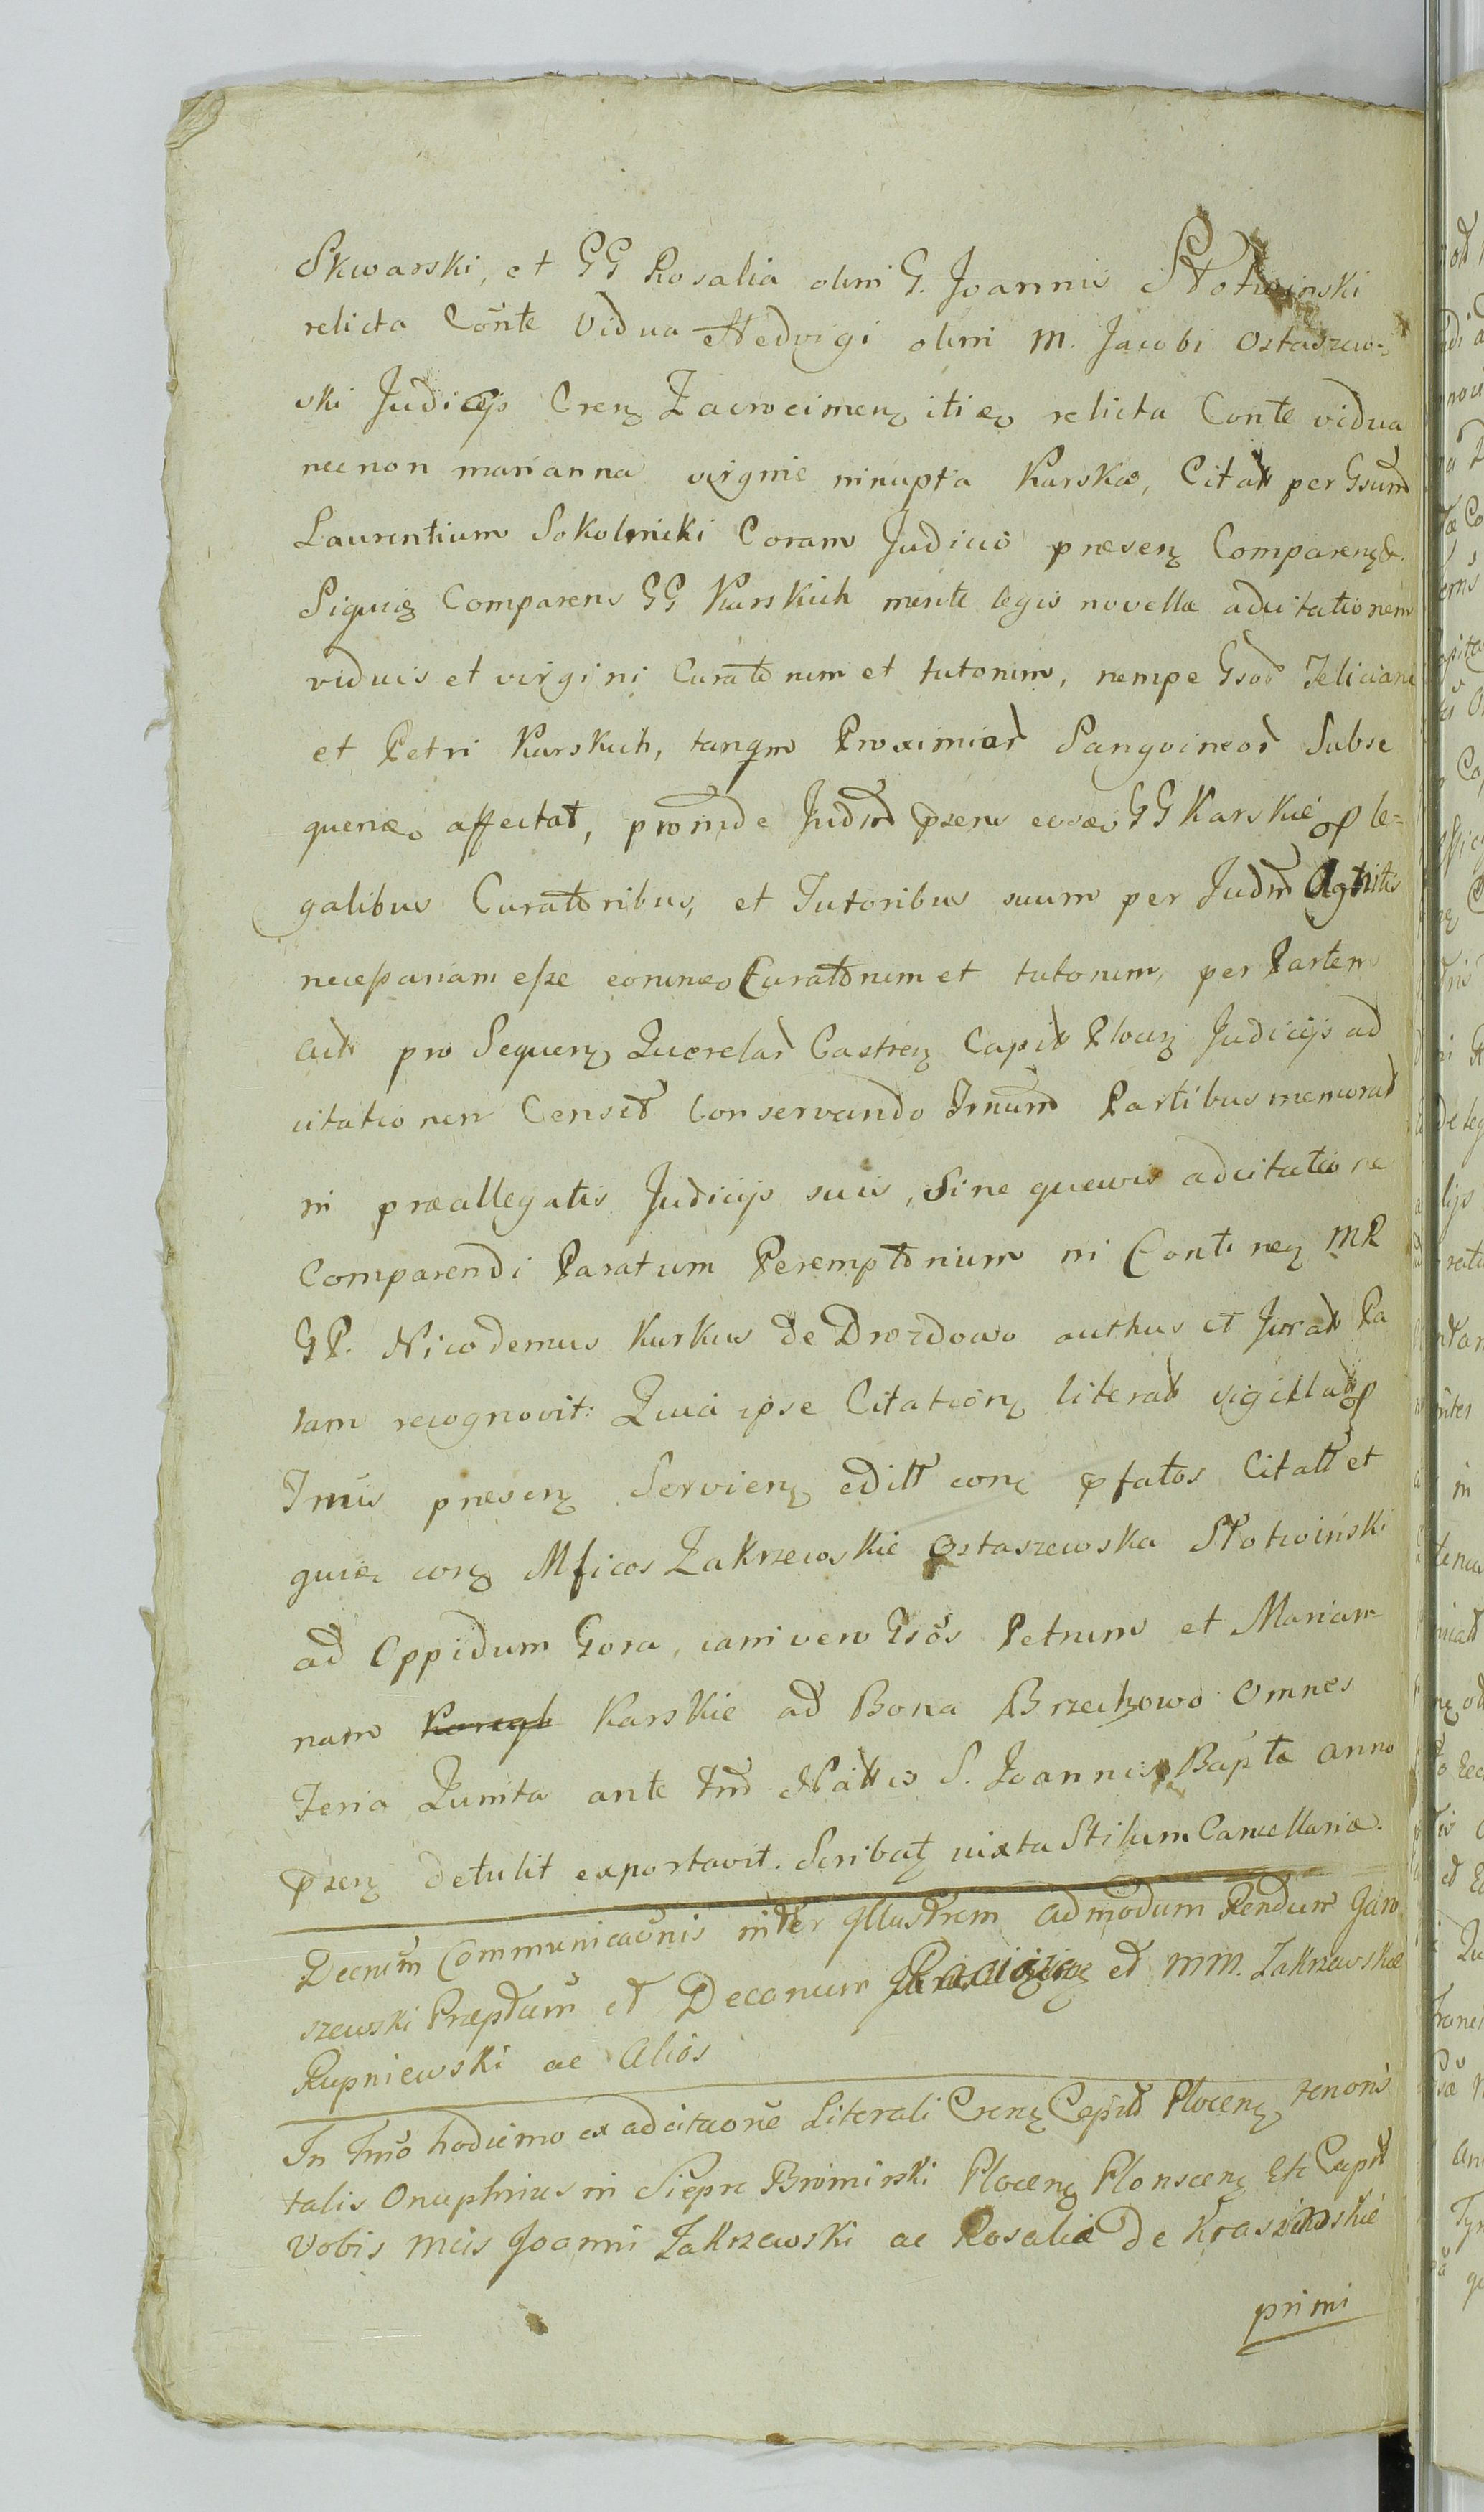 Skwarski, et GG Rosalia olim G. Joannis Słotwinski
relicta Conte Vidua Hedvigi olim M. Jacobi Ostaszew=
ski Judicijs Crenę Zacrocimenę itiqo relicta Conte vidua
necnon marianna virgine ninupta Karska, Citatt per Gsum
Laurentium Sokolnicki Coram Judicio presenę Comparenę &.
Siquię Comparens GG Karskich mente legis novellæ adcitationem
viduis et virgini Curatorum et tutorum, nempe Gsod Feliciani
et Petri Karskich, tanqm Proximior Sangvineor Subse
quenæo affectat, proinde Judm pzens eosæo GG Karskie op le=
galibus Curatoribus, et Tutoribus suum per Judm Agnitis
necessariam esse eorumæo Curatorum et tutorum, per Partem
Actt pro Sequenę Querelar Castrenę Capitt Plocenę Judicijs ad
citationem Censet Conservando Tmum Partibus memorat
in præallegatis Judicijs suis, Sine quavis adcitatione
Comparendi Paratum Peremptorium in Contineę MR
GP. Nicodemus Kurkus de Drozdowo authus et Juratt Pa
lam recognovit: Quia ipse Citationę literatt sigillatt op
Tmis presenę Servienę editt conę pfatos Citatt et
quię conę Mficos Zakrzewskie Ostaszewska Słotwiński
ad Oppidum Gora, iam vero Gsos Petrum et Marian
nam Karskie ad Bona Brzechowo Omnes
Feria Quinta ante Fm Nattis S. Joannis Bapta anno
pzenę detulit exportavit. Scribatę iuxta Stilum Cancellariæ.
Decrum Communicaonis inter Jllustrem Admodum Rendum Jaro
szewski Præptum et Decanum Raciązinę et MM. Zakrzewskie
Rupniewski ac Alios
In Tmo hodierno ex adcitaone Literali Crenę Capitt Plocenę tenoris
talis Onuphrius in Siepre Bromirski Plocenę Plonscenę Etc Capitt
Vobis Mcis Joanni Zakrzewski ac Rosalia de Krasinskie
primi